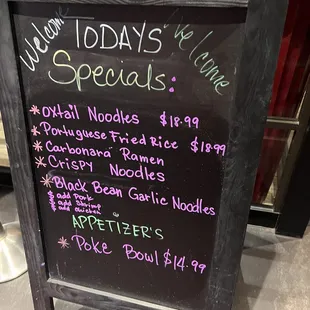 Welcome TODAYS Welcome
Specials:
* oxtail Noodles $18.99
* Portuguese Fried Rice $18.99
* Carbonara Ramen
* Crispy Noodles
* Black Bean Garlic Noodles
$ add Pork
$ add Shrimp
$ add chicken
APPETIZER'S
* Poke Bowl $14.99